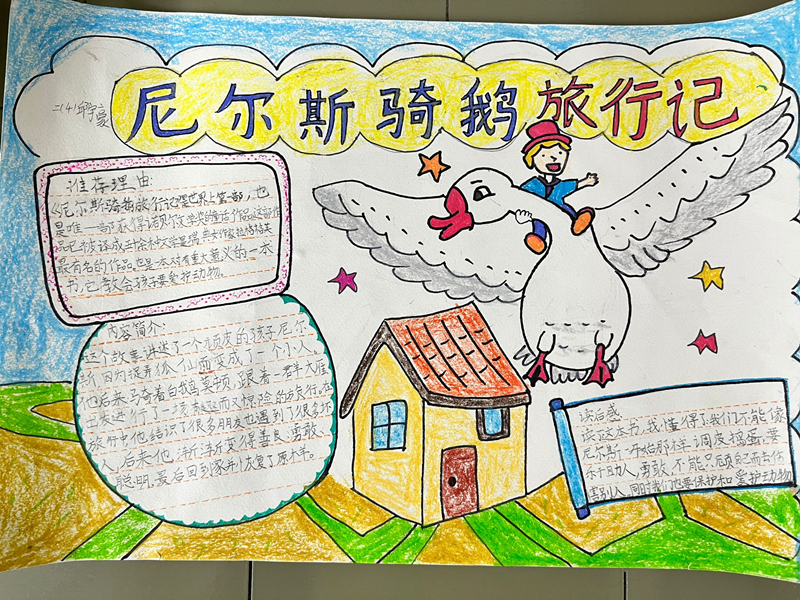 尼尔斯骑鹅旅行记
二(4)
推荐理由:
《尼尔斯骑鹅旅行记》是世界上第一部,也
是唯一一部获得诺贝尔文学奖的童话作品,这部作
品已被译成
最有名的作品。也是一本对有重大意义的一本
书,它教会孩子要爱护动物。
内容简介:
这个故事讲述了一个顽皮的孩子尼尔
斯,因为捉弄小仙而变成了一个小人。
他后来骑着白鹅莫顿,跟着一群大雁
进行了一场 而又惊险的旅行。在
旅行中他结识了很多朋友也遇到了很多坏
人,后来他,渐渐变得善良、勇敢、
聪明,最后回到家并恢复了原样。
读后感
读这本书,我懂得了我们不能像
尼尔斯一开始那样调皮捣蛋,要
乐于助人,勇敢,不能只顾自己而去伤
害别人,同时我们也要保护和爱护动物